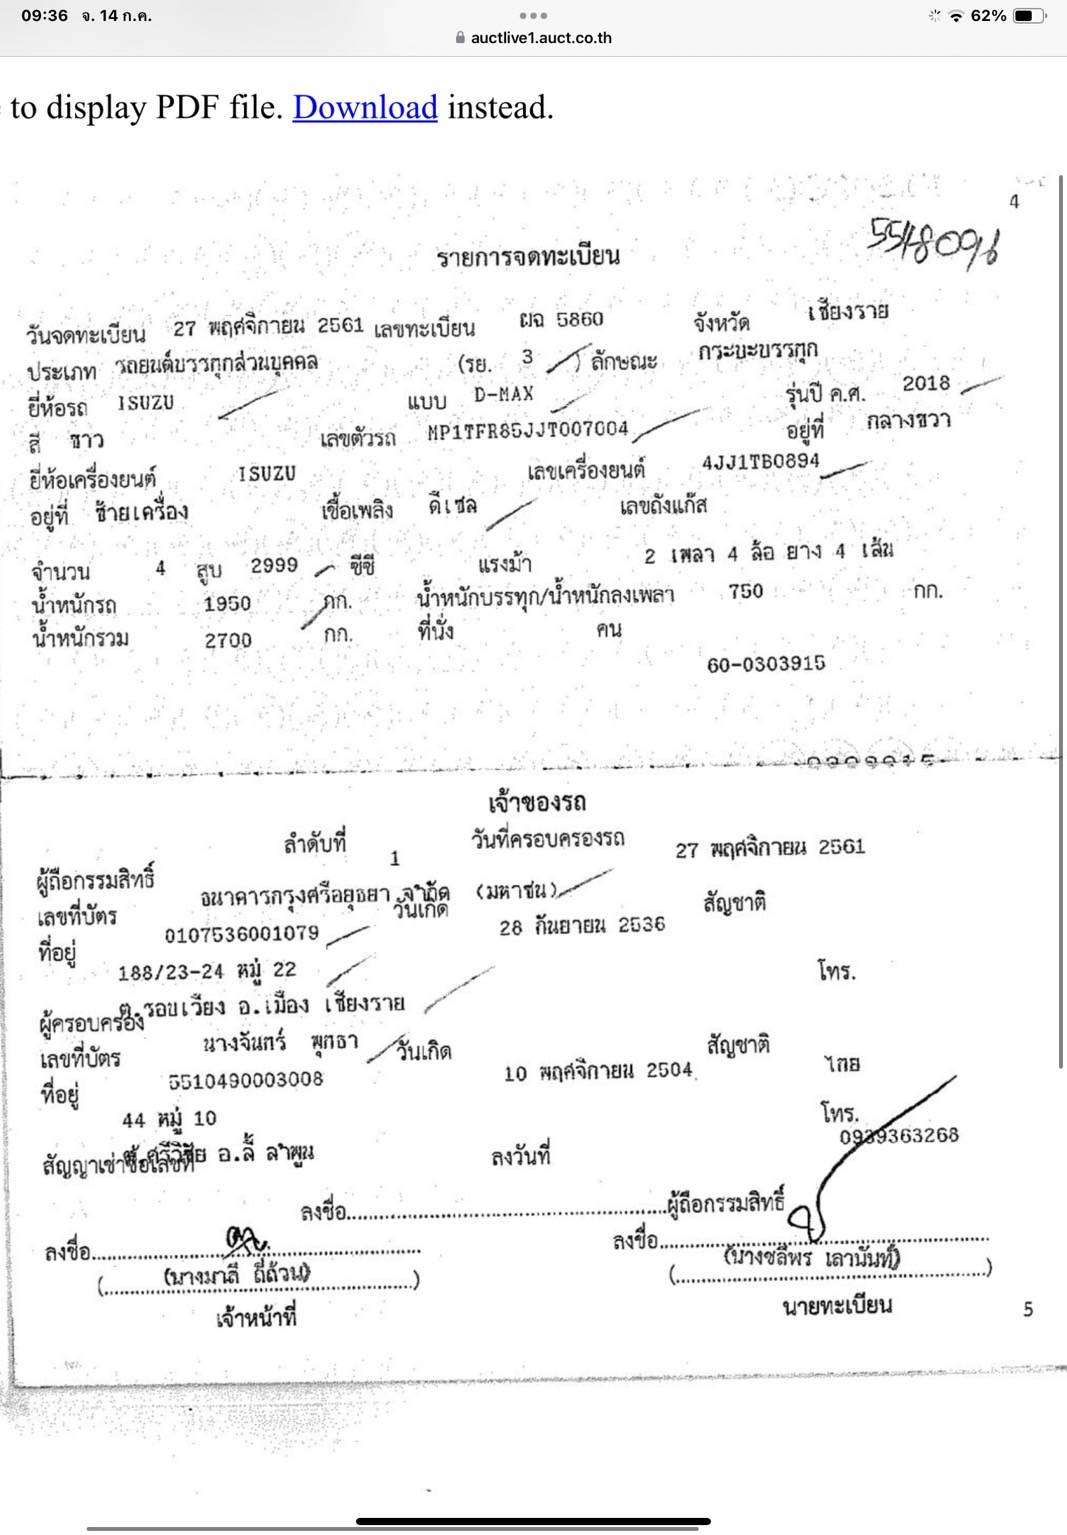 09:36 จ. 14 ก.ค.
62%
auctlive1.auct.co.th
to display PDF file. Download instead.
4
5548096
รายการจดทะเบียน
วันจดทะเบียน 27 พฤศจิกายน 2561 เลขทะเบียน ผฉ 5860 จังหวัด เชียงราย
ประเภท รถยนต์บรรทุกส่วนบุคคล (รย. 3 ) ลักษณะ กระบะบรรทุก
ยี่ห้อรถ ISUZU แบบ D-MAX รุ่นปี ค.ศ. 2018
สี ขาว เลขตัวรถ MP1TFR85JJT007004 อยู่ที่ กลางขวา
ยี่ห้อเครื่องยนต์ ISUZU เลขเครื่องยนต์ 4JJ1TB0894
อยู่ที่ ซ้ายเครื่อง เชื้อเพลิง ดีเซล เลขถังแก๊ส
จำนวน 4 สูบ 2999 ซีซี แรงม้า 2 เพลา 4 ล้อ ยาง 4 เส้น
น้ำหนักรถ 1950 กก. น้ำหนักบรรทุก/น้ำหนักลงเพลา 750 กก.
น้ำหนักรวม 2700 กก. ที่นั่ง คน
60-0303915
เจ้าของรถ
ลำดับที่ 1 วันที่ครอบครองรถ 27 พฤศจิกายน 2561
ผู้ถือกรรมสิทธิ์ ธนาคารกรุงศรีอยุธยา จำกัด (มหาชน)
เลขที่บัตร 0107536001079 วันเกิด 28 กันยายน 2536 สัญชาติ
ที่อยู่ 188/23-24 หมู่ 22 โทร.
ต.รอบเวียง อ.เมือง เชียงราย
ผู้ครอบครอง นางจันทร์ พุทธา
เลขที่บัตร 5510490003008 วันเกิด 10 พฤศจิกายน 2504 สัญชาติ ไทย
ที่อยู่ 44 หมู่ 10 โทร. 0939363268
ต.ศรีวิชัย อ.ลี้ ลำพูน
สัญญาเช่าซื้อเลขที่ ลงวันที่
ลงชื่อ ผู้ถือกรรมสิทธิ์
ลงชื่อ ลงชื่อ
(นางมาลี ถี่ถ้วน) (นางชลีพร เลานันท์)
เจ้าหน้าที่ นายทะเบียน
5